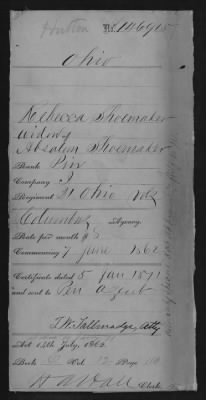 No. 146915
Ohio
Rebecca Shoemaker
widow of
Absalom Shoemaker
Rank Priv
Company I
Regiment 21 Ohio Vols
Columbus Agency.
Rate per month $ 8
Commencing 7 June 1862
Certificate dated 5 Jan 1871
and sent to Pen agent
T.W. Tallmadge, Atty
Act 14th July, 1862.
Book Vol. 12 Page
H A Hall Clerk